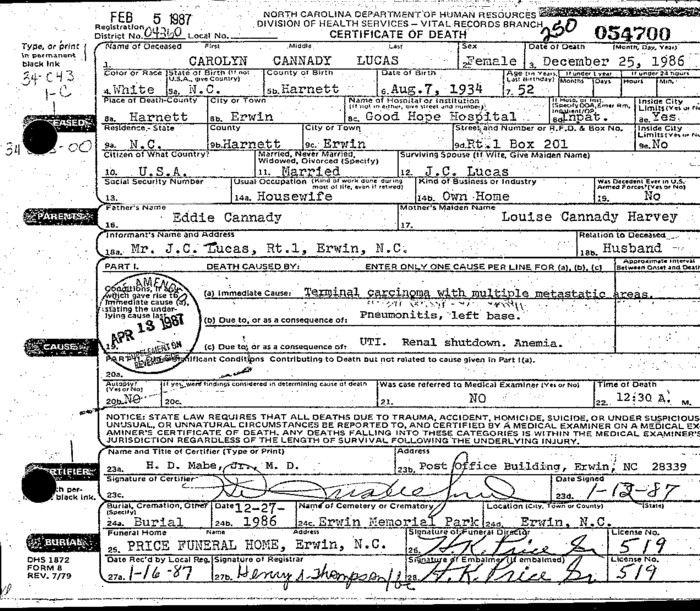 FEB 5 1987
NORTH CAROLINA DEPARTMENT OF HUMAN RESOURCES
DIVISION OF HEALTH SERVICES - VITAL RECORDS BRANCH
CERTIFICATE OF DEATH
250
054700
Registration District No. 04360 Local No.
Type, or print in permanent black ink
34-C43
1-C
Name of Deceased First Middle Last Sex Date of Death (Month, Day, Year)
1. CAROLYN CANNADY LUCAS 2. Female 3. December 25, 1986
Color or Race State of Birth (If not U.S.A., give Country) County of Birth Date of Birth Age (In Years, Last Birthday) If under 1 year If under 24 hours
Months Days Hours Min.
4. White 5a. N.C. 5b. Harnett 6. Aug.7, 1934 7. 52
Place of Death-County City or Town Name of Hospital or Institution (If not in either, give street and number) If Hosp. or Inst. (Specify DOA, Emer Rm, Inpatient/OP) Inside City Limits (Yes or No)
8a. Harnett 8b. Erwin 8c. Good Hope Hospital 8d. Inpat. 8e. Yes
EASED
34
-00
Residence - State County City or Town Street and Number or R.F.D. & Box No. Inside City Limits (Yes or No)
9a. N.C. 9b. Harnett 9c. Erwin 9d. Rt.1 Box 201 9e. No
Citizen of What Country? Married, Never Married, Widowed, Divorced (Specify) Surviving Spouse (If Wife, Give Maiden Name)
10. U.S.A. 11. Married 12. J.C. Lucas
Social Security Number Usual Occupation (Kind of work done during most of life, even if retired) Kind of Business or Industry Was Decedent Ever in U.S. Armed Forces? (Yes or No)
13. 14a. Housewife 14b. Own Home 15. No
PARENTS
Father's Name Mother's Maiden Name
16. Eddie Cannady 17. Louise Cannady Harvey
Informant's Name and Address Relation to Deceased
18a. Mr. J.C. Lucas, Rt.1, Erwin, N.C. 18b. Husband
PART I. DEATH CAUSED BY: ENTER ONLY ONE CAUSE PER LINE FOR (a), (b), (c) Approximate Interval Between Onset and Death
Conditions, if any which gave rise to immediate cause (a) stating the underlying cause last
AMENDED
APR 13 1987
SUPPLEMENT ON REVERSE SIDE
(a) Immediate Cause: Terminal carcinoma with multiple metastatic areas.
(b) Due to, or as a consequence of: Pneumonitis, left base.
CAUSE
19. (c) Due to, or as a consequence of: UTI. Renal shutdown. Anemia.
PART II. Significant Conditions Contributing to Death but not related to cause given in Part I(a).
20a.
Autopsy? (Yes or No) If yes, were findings considered in determining cause of death Was case referred to Medical Examiner (Yes or No) Time of Death
20b. No 20c. 21. NO 22. 12:30 A. M.
NOTICE: STATE LAW REQUIRES THAT ALL DEATHS DUE TO TRAUMA, ACCIDENT, HOMICIDE, SUICIDE, OR UNDER SUSPICIOUS
UNUSUAL, OR UNNATURAL CIRCUMSTANCES BE REPORTED TO, AND CERTIFIED BY A MEDICAL EXAMINER ON A MEDICAL EX
AMINER'S CERTIFICATE OF DEATH. ANY DEATHS FALLING INTO THESE CATEGORIES IS WITHIN THE MEDICAL EXAMINER'S
JURISDICTION REGARDLESS OF THE LENGTH OF SURVIVAL FOLLOWING THE UNDERLYING INJURY.
Name and Title of Certifier (Type or Print) Address
23a. H. D. Mabe, Jr., M. D. 23b. Post Office Building, Erwin, NC 28339
RTIFIER
black ink.
Signature of Certifier Date Signed
23c. 23d. 1-12-87
Burial, Cremation, Other (Specify) Date Name of Cemetery or Crematory Location (City, Town or County) (State)
24a. Burial 24b. 12-27-1986 24c. Erwin Memorial Park 24d. Erwin, N.C.
BURIAL
Funeral Home Name Address Signature of Funeral Director License No.
25. PRICE FUNERAL HOME, Erwin, N.C. 26. A.K. Price Jr 519
DHS 1872
FORM 8
REV. 7/79
Date Rec'd by Local Reg. Signature of Registrar Signature of Embalmer (If embalmed) License No.
27a. 1-16-87 27b. Henry S. Thompson/bc 28. A.K. Price Jr 519